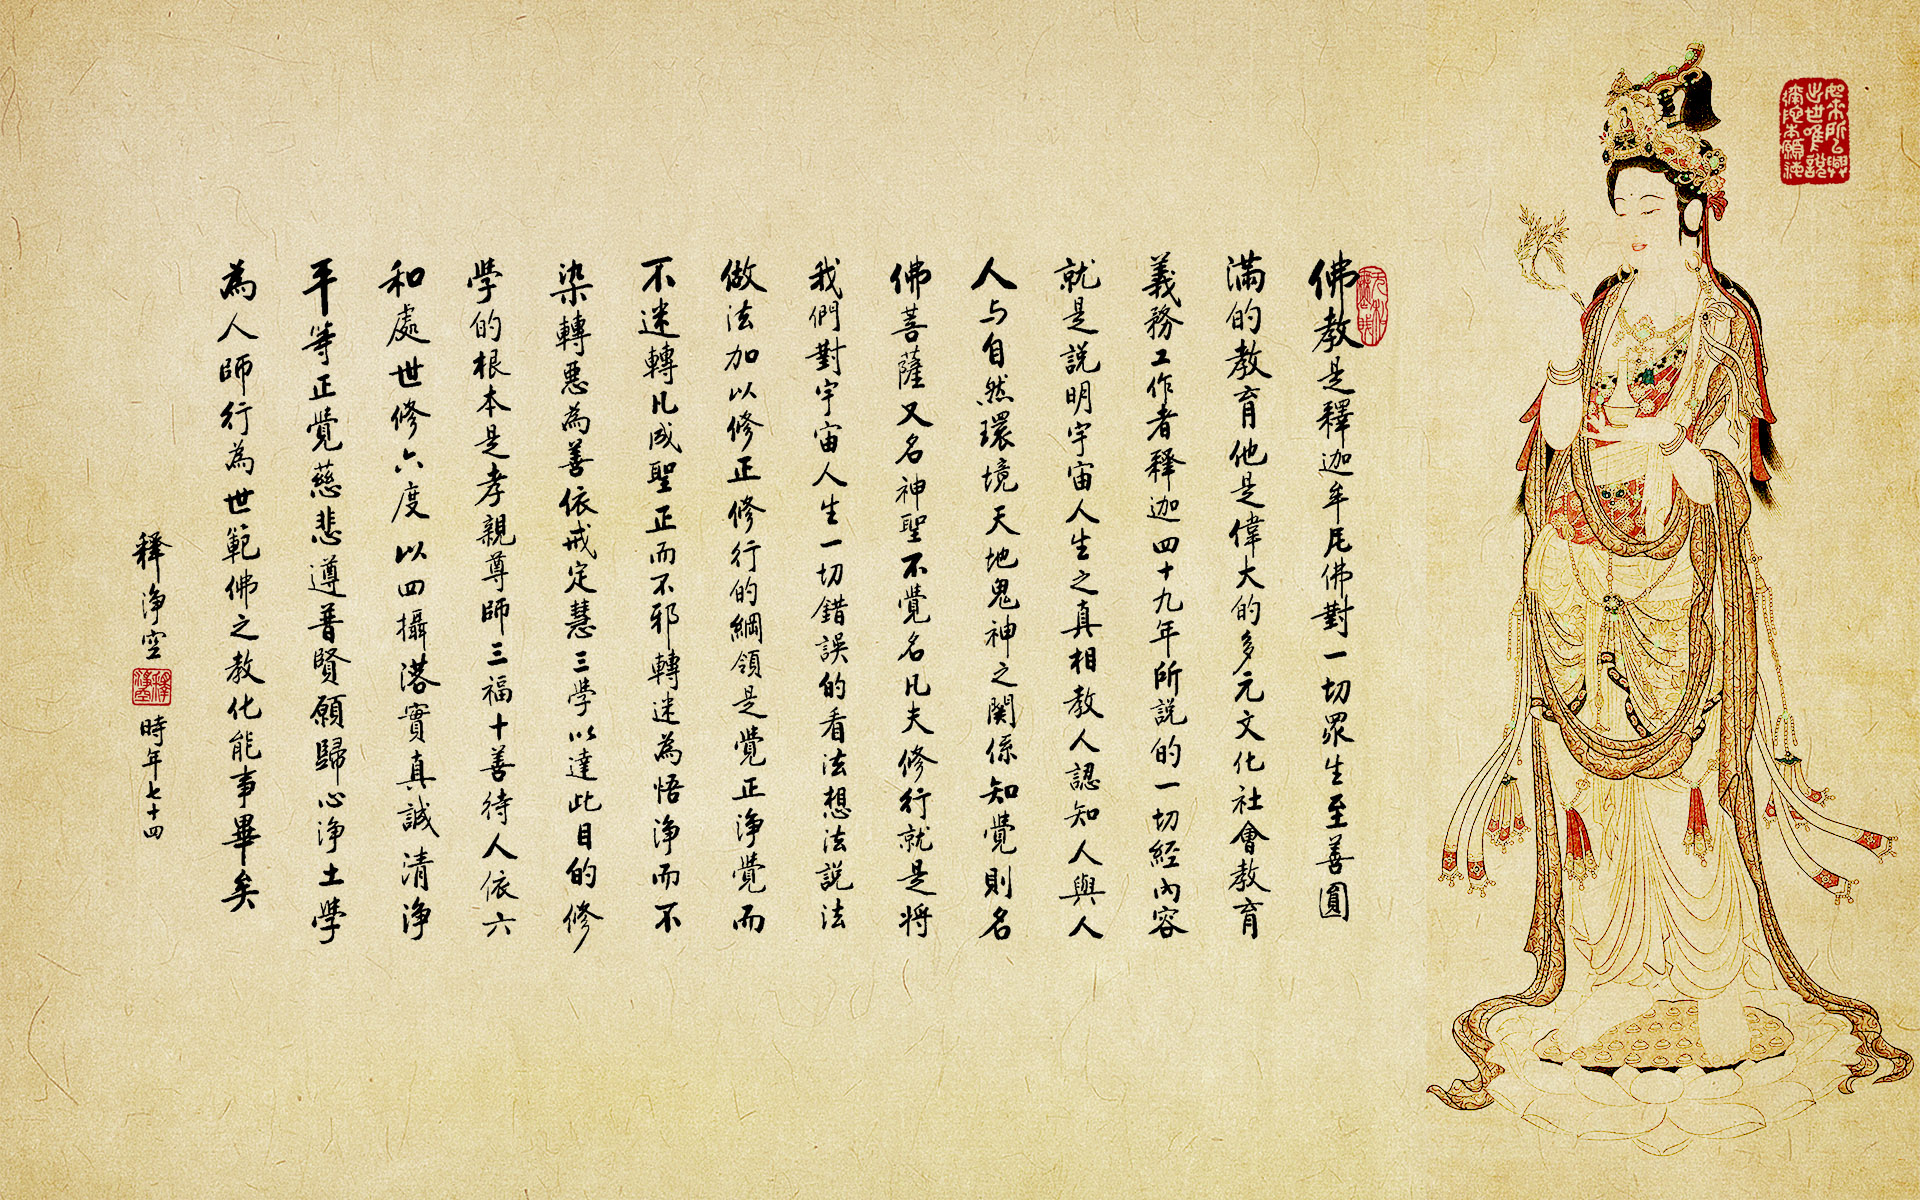 如來所以興
出世唯說
彌陀本願海
佛教是釋迦牟尼佛對一切眾生至善圓
滿的教育他是偉大的多元文化社會教育
義務工作者釋迦四十九年所說的一切經內容
就是說明宇宙人生之真相教人認知人與人
人与自然環境天地鬼神之関係知覺則名
佛菩薩又名神聖不覺名凡夫修行就是將
我們對宇宙人生一切錯誤的看法想法說法
做法加以修正修行的綱領是覺正淨覺而
不迷轉凡成聖正而不邪轉迷為悟淨而不
染轉惡為善依戒定慧三學以達此目的修
學的根本是孝親尊師三福十善待人依六
和處世修六度以四攝落實真誠清淨
平等正覺慈悲遵普賢願歸心淨土學
為人師行為世範佛之教化能事畢矣
釋淨空
時年七十四